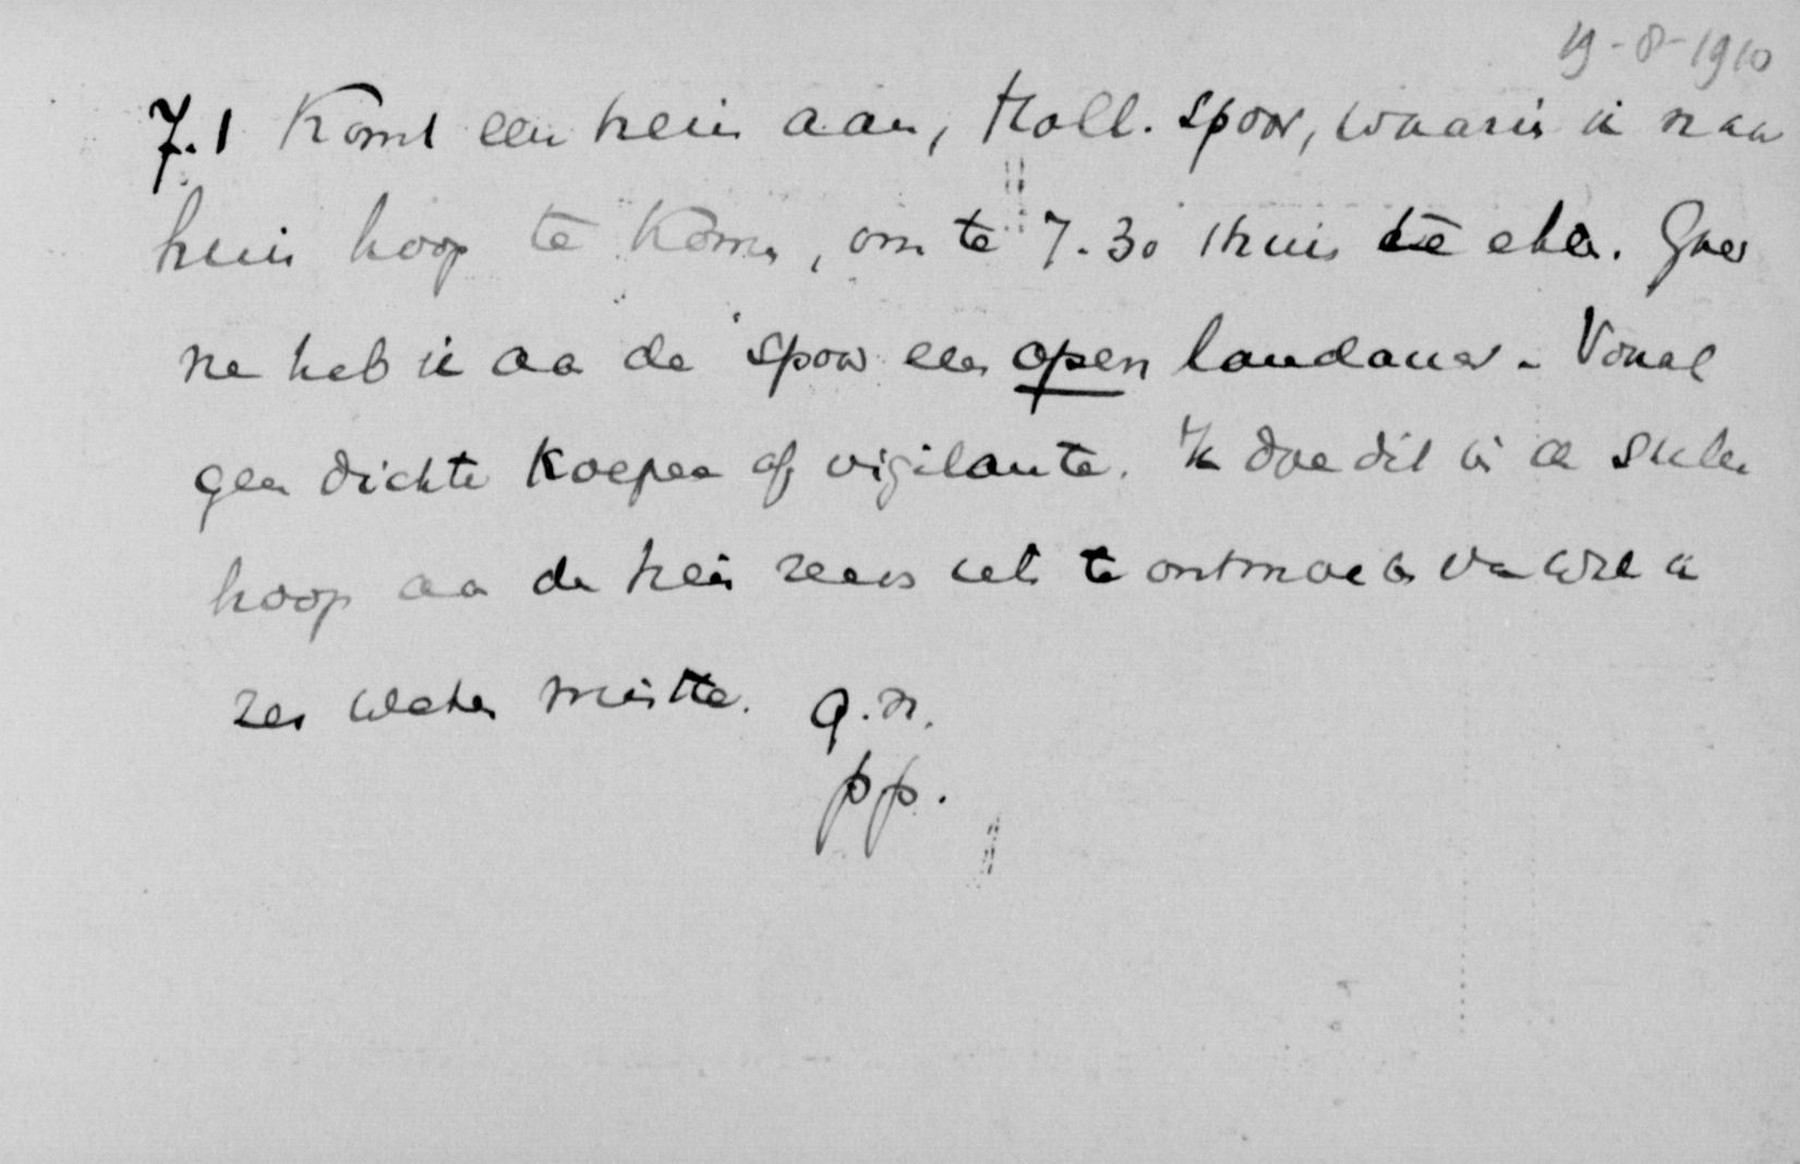 19-8-1910
7.1 Komt een trein aan, Holl. spoor, waarin ik naar
huis hoop te komen, om te 7.30 thuis te eten. Gaar
ne heb ik aan de spoor een open landauer. Vooral
geen dichte koepee of vigilante. Ik doe dit in de
hoop aan de trein iets te ontmoeten
zes weken miste. q.n.
pp.